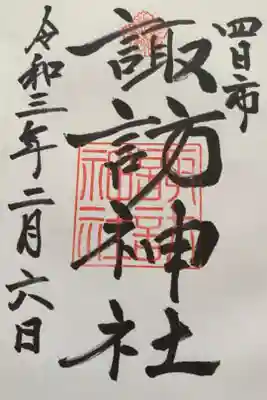 四日市
諏訪神社
令和三年二月六日
諏訪神社